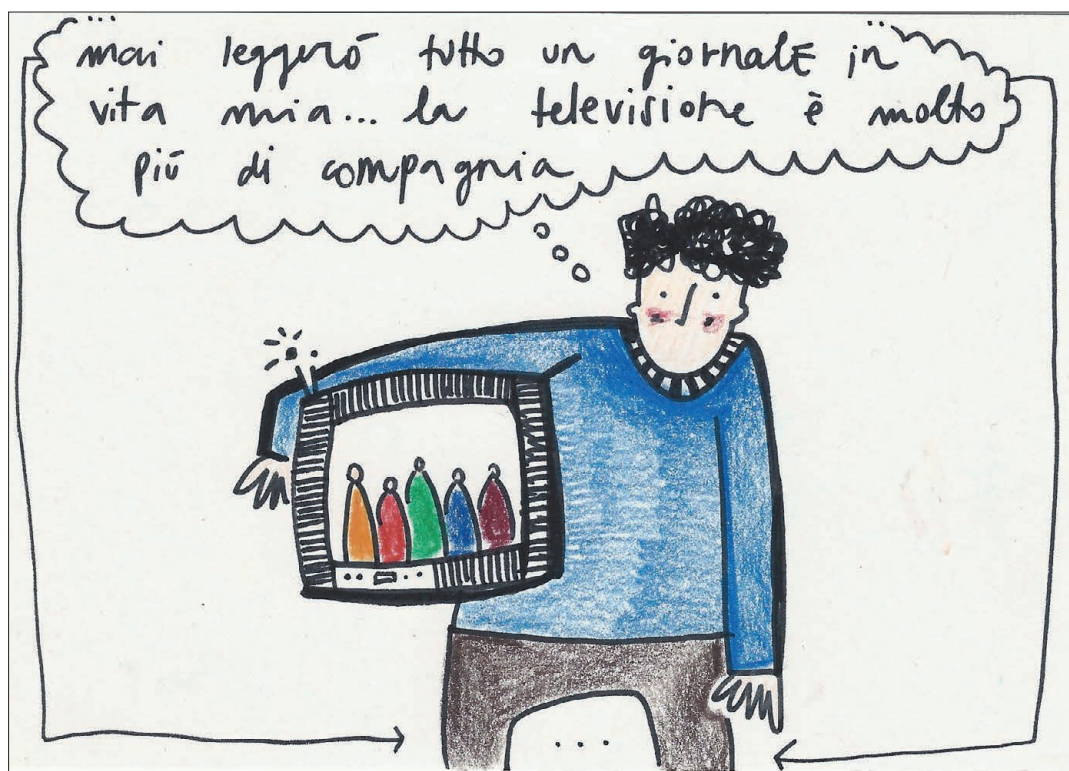 ...
mai leggeró tutto un giornale in
vita mia... la televisione è molto
più di compagnia
...